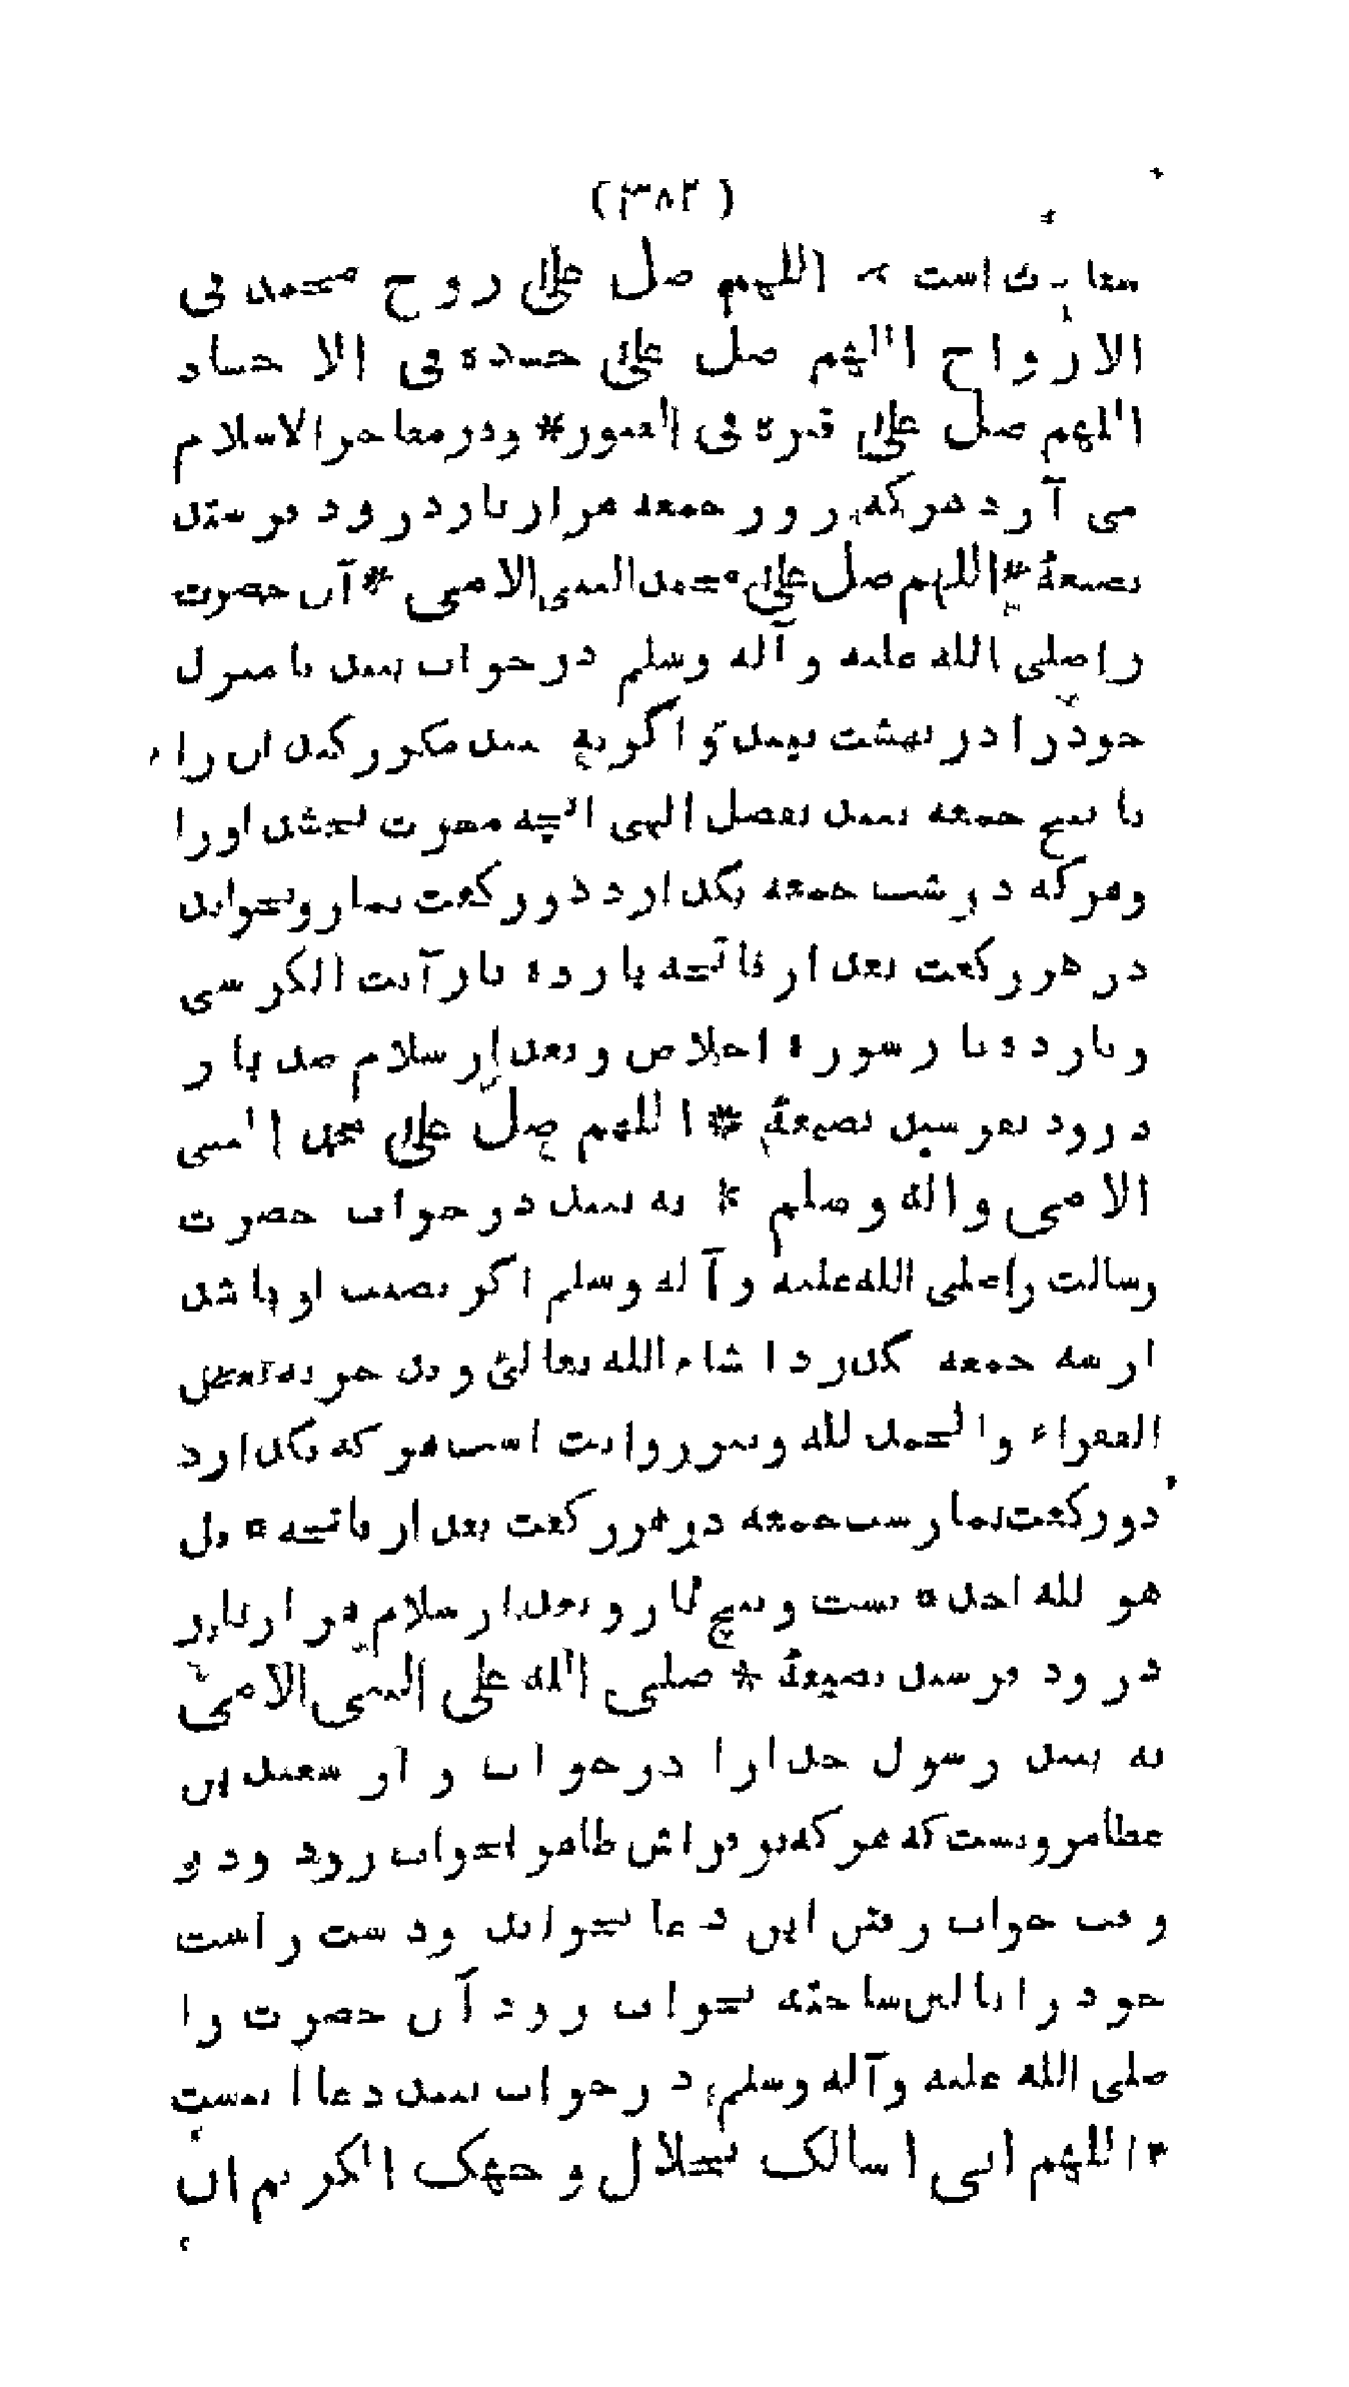 ( ٣٨٢ )
است * اللهم صل علی روح محمد فی
الارواح اللهم صل علی جسده فی الا جساد
اللهم صل علی قبره فی القبور * ودر مفاخر الاسلام
می آرد هرکه روز جمعه هزار بار درود فرستد
بصیغهٔ * اللهم صل علی محمد النبی الامی * آن حضرت
را صلی الله علیه و آله وسلم در خواب بیند یا منزل
خود را در بهشت بیند و اگر نه بیند مکرر کند این را
تا پنج جمعه ببیند بفضل الهی انچه بخشد اورا
وهرکه در شب جمعه بگذارد دو رکعت نماز و بخواند
در هر رکعت بعد از فاتحه یازده بار آیت الکرسی
و یازده بار سورهٔ اخلاص و بعد از سلام صد بار
درود بفرستد بصیغهٔ * اللهم صل علی محمد النبی
الامی واله وسلم * به بیند در خواب حضرت
رسالت را صلی الله علیه و آله وسلم اگر نصیب او باشد
از سه جمعه گذرد ا شاء الله تعالیٰ و
الفقراء والحمد لله ونیز روایت است هر که بگذارد
دو رکعت نماز شب جمعه در هر رکعت بعد از فاتحه * قل
هو لله احد * بست و پنج بار و بعد از سلام هزار بار
درود فرستد بصیغهٔ * صلی الله علی النبی الامی
به بیند رسول خدا را در خواب و از سعید بن
عطا مرویست که هر که بر فراش طاهر بخواب رود ودر
وقت خواب رفتن این دعا بخواند ودست راست
خود را بالین ساخته بخواب رود آن حضرت را
صلی الله علیه و آله وسلم در خواب ببیند دعا اینست
* اللهم انی اسالک بجلال وجهک الکریم ان